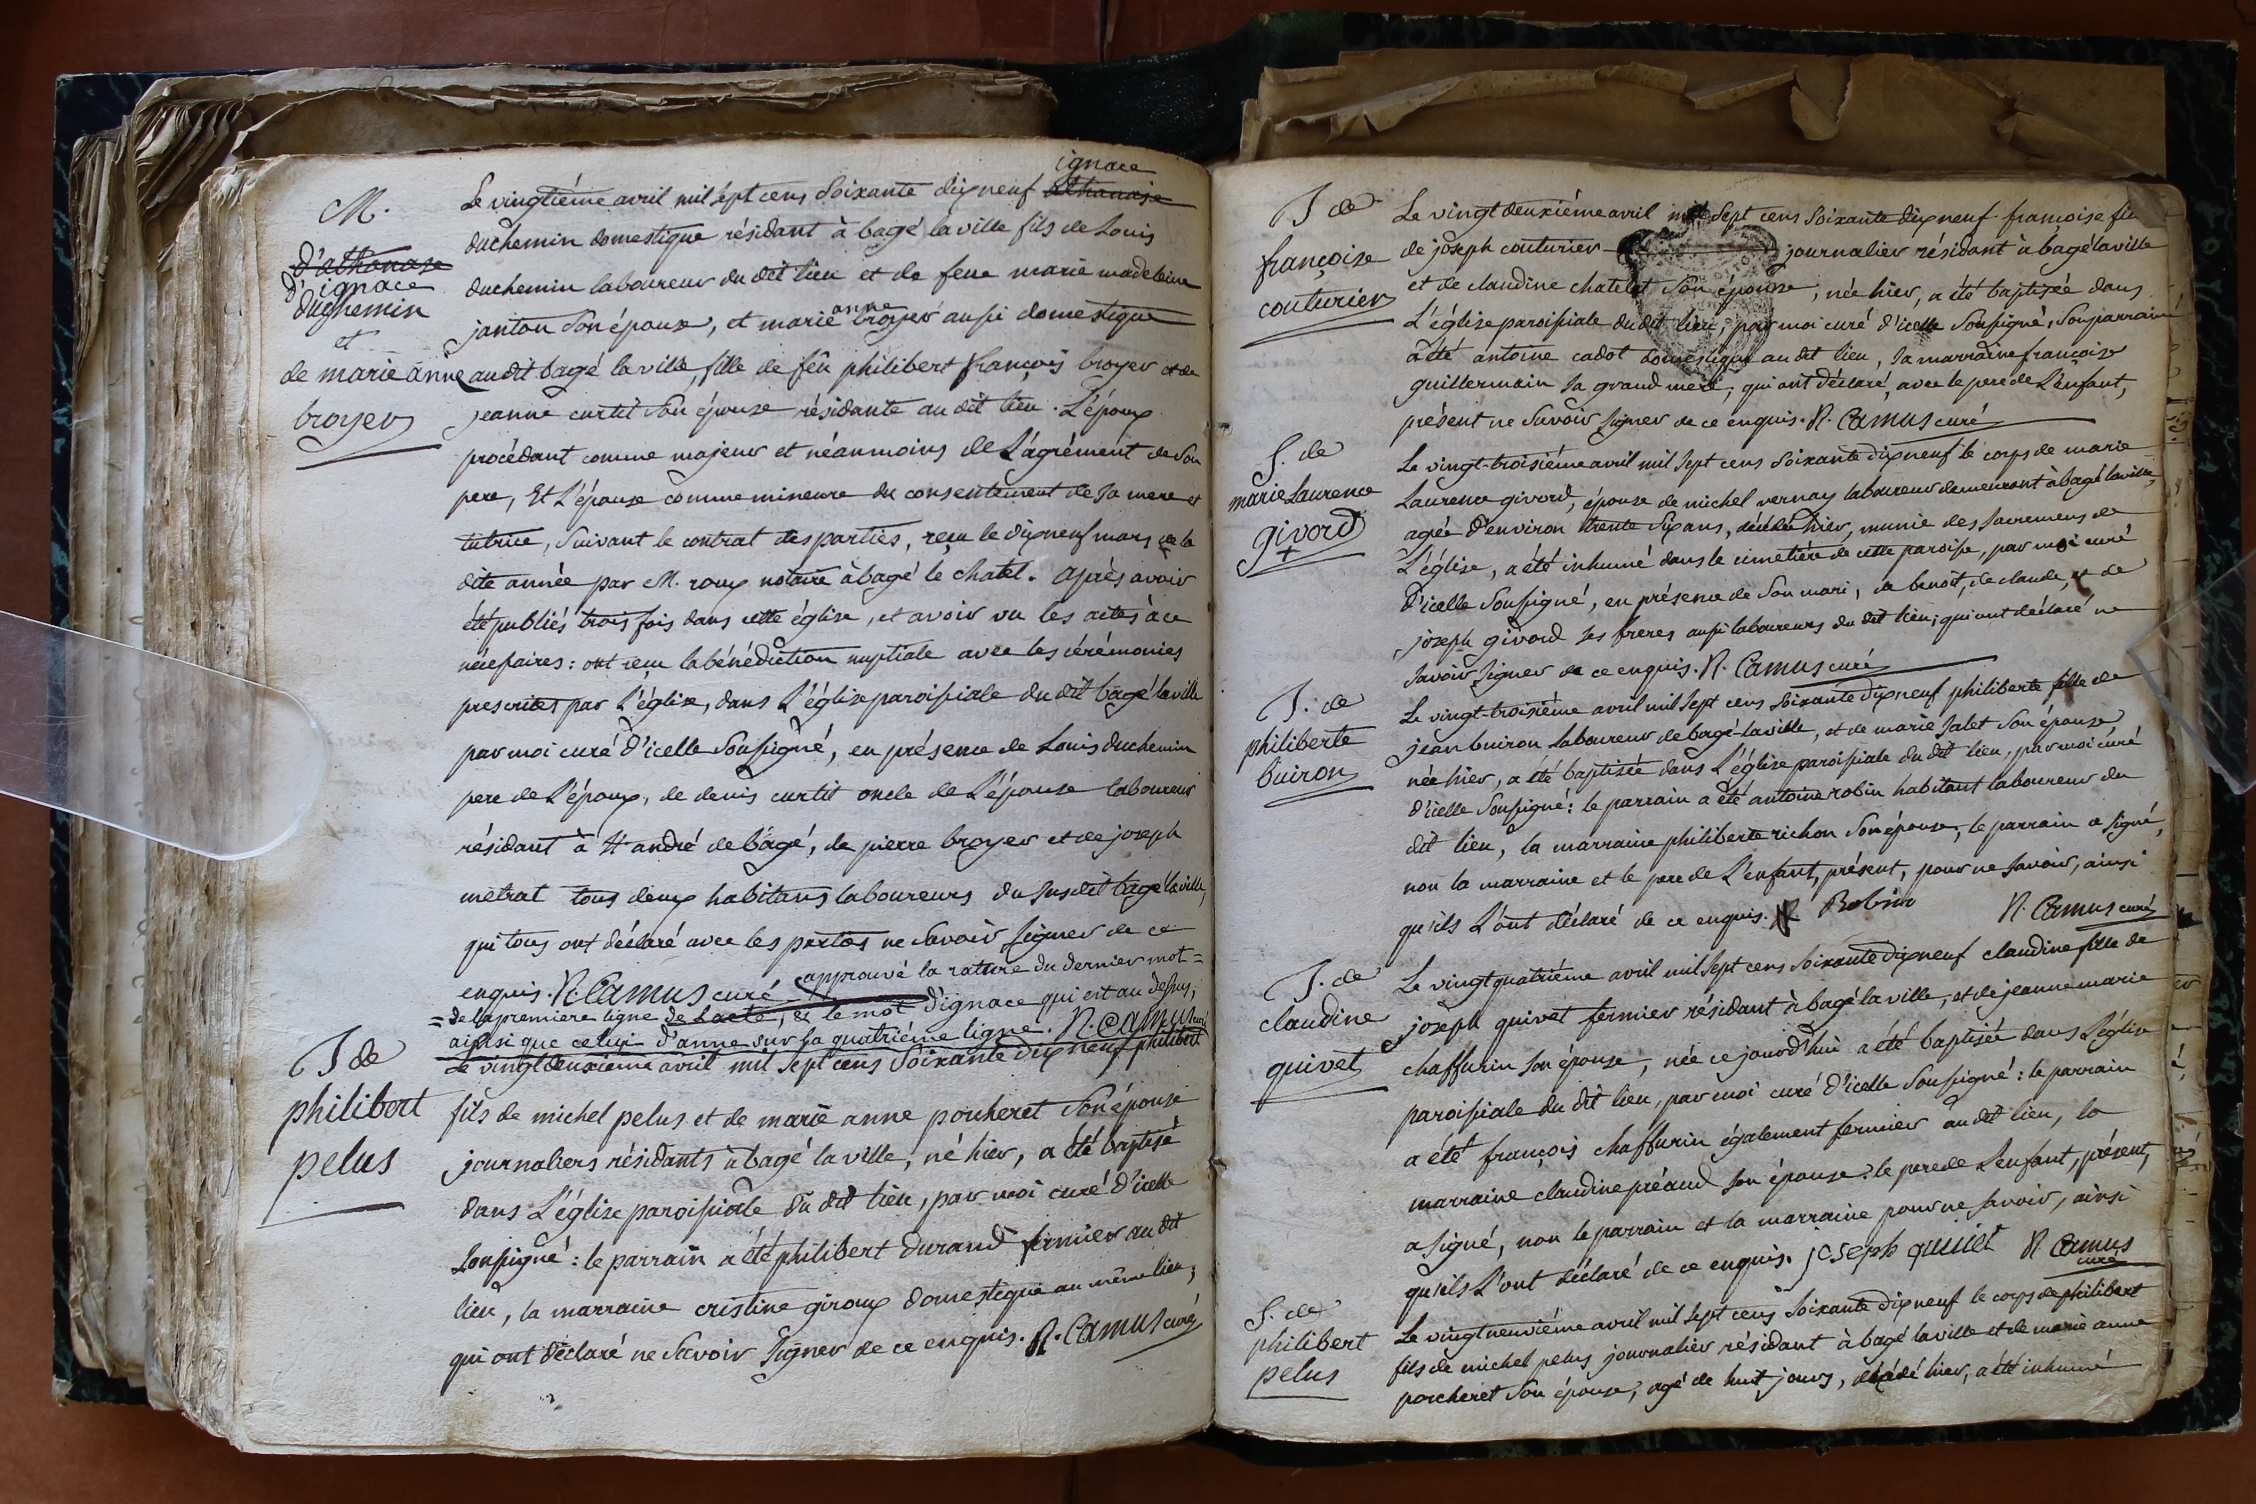 M.
d'athanase
d'ignace
duchemin
et
de marie anne
broyer
ignace
Le vingtiéme avril mil sept cens soixante dix neuf athanase
duchemin domestique résidant à bagé la ville fils de Louis
duchemin laboureur du dit lieu et de feue marie madeleine
janton son épouse, et marie anne broyer aussi domestique
au dit bagé la ville, fille de feu philibert françois broyer et de
jeanne curtil son épouse résidante au dit lieu. L'époux
procédant comme majeur et néanmoins de L'agrément de son
pere, Et L'épouse comme mineure du consentement de sa mere et
tutrice, suivant le contrat des parties, reçu le dix neuf mars de la
dite année par M. roux notaire à bagé le chatel. après avoir
été publiés trois fois dans cette église, et avoir vu les actes à ce
nécessaires : ont reçu la bénédiction nuptiale avec les cérémonies
prescrites par L'église, dans L'église paroissiale du dit bagé la ville
par moi curé d'icelle soussigné, en présence de Louis duchemin
pere de L'époux, de denis curtil oncle de L'épouse laboureur
résidant à st andré de bâgé, de pierre broyer et de joseph
metrat tous deux habitans laboureurs du susdit bagé la ville,
qui tous ont déclaré avec les parties ne savoir signer de ce
enquis. N. Camus curé approuvé la rature du dernier mot =
= de la premiere ligne de L'acte, et le mot d'ignace qui est au dessus,
ainsi que celui d'anne sur la quatriéme ligne. N. Camus curé
J de
philibert
pelus
Le vingtdeuxieme avril mil sept cens soixante dix neuf philibert
fils de michel pelus et de marie anne porcheret son épouse
journaliers résidants à bagé la ville, né hier, a été baptisé
dans L'église paroissiale du dit lieu, par moi curé d'icelle
soussigné : le parrain a été philibert durand fermier au dit
lieu, la marraine cristine giroux domestique au même lieu,
qui ont déclaré ne savoir signer de ce enquis. N. Camus curé
J de
françoise
couturier
Le vingtdeuxiéme avril mil sept cens soixante dix neuf françoise
de joseph couturier journalier résidant à bagé la ville
et de claudine chatelet son épouse, née hier, a été baptisée dans
L'église paroissiale du dit lieu, par moi curé d'icelle soussigné, son parrain
a été antoine cadot domestique au dit lieu, sa marraine françoise
guillermain sa grand mere, qui ont déclaré, avec le pere de L'enfant,
présent ne savoir signer de ce enquis. N. Camus curé
S. de
marie Laurence
givord
+
Le vingt-troisiéme avril mil sept cens soixante dix neuf le corps de marie
Laurence givord, épouse de michel vernay laboureur demeurant à bagé la ville,
agée d'environ trente six ans, décédée hier, munie des sacremens de
L'église, a été inhumé dans le cimetiére de cette paroisse, par moi curé
d'icelle soussigné, en présence de son mari, de benoit, de claude, et de
joseph givord ses freres aussi laboureurs du dit lieu; qui ont déclaré ne
savoir signer de ce enquis. N. Camus curé
J. de
philiberte
buiron
Le vingt-troisiéme avril mil sept cens soixante dix neuf philiberte fille de
jean buiron laboureur de bagé-la ville, et de marie jalet son épouse
née hier, a été baptisée dans L'église paroissiale du dit lieu, par moi curé
d'icelle soussigné : le parrain a été antoine robin habitant laboureur du
dit lieu, la marraine philiberte richon son épouse; le parrain a signé,
non la marraine et le pere de L'enfant, présent, pour ne savoir, ainsi
qu'ils L'ont déclaré de ce enquis. Robin N. Camus curé
J. de
claudine
quivet
Le vingtquatriéme avril mil sept cens soixante dix neuf claudine fille de
joseph quivet fermier résidant à bagé la ville, et de jeanne marie
chaffurin son épouse, née ce jourd'hui a été baptisée dans L'église
paroissiale du dit lieu, par moi curé d'icelle soussigné : le parrain
a été françois chaffurin également fermier au dit lieu, la
marraine claudine préaud son épouse. le pere de L'enfant, présent,
a signé, non le parrain et la marraine pour ne savoir, ainsi
qu'ils L'ont déclaré de ce enquis. joseph quiuet N Camus
curé
S. de
philibert
pelus
Le vingtneuviéme avril mil sept cens soixante dix neuf le corps de philibert
fils de michel pelus journalier résidant à bagé la ville et de marie anne
porcheret son épouse, agé de huit jours, décédé hier, a été inhumé